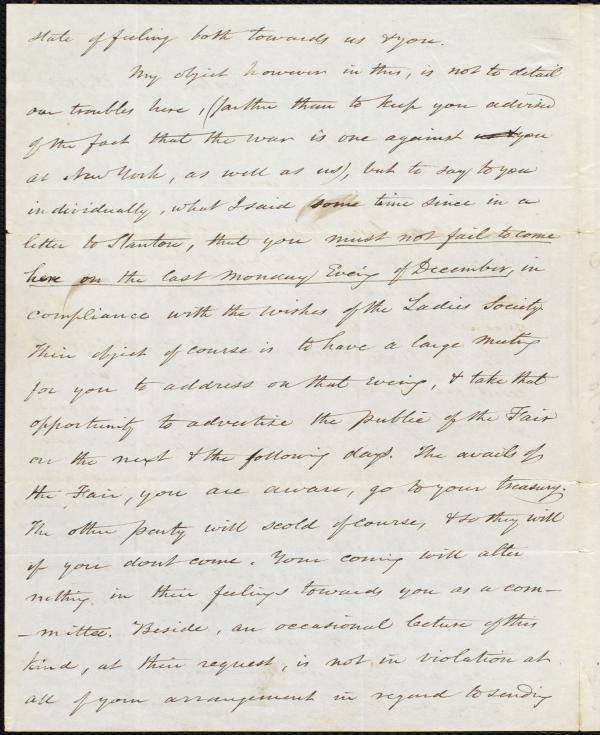 state of feeling both towards us & you.
My object however in this, is not to detail
our troubles here, (farther than to keep you advised
of the fact that the war is one against you
at New York, as well as us), but to say to you
individually, what I said some time since in a
letter to Stanton, that you must not fail to come
here on the last Monday Eveng of December, in
compliance with the wishes of the Ladies Society.
Their object of course is to have a large meeting
for you to address on that Eveing, & take that
opportunity to advertise the public of the Fair
on the next & the following days. The avails of
the Fair, you are aware, go to your treasury.
The other party will scold of course, & so they will
if you dont come. Your coming will alter
nothing in their feelings towards you as a com-
-mittee. Beside, an occasional lecture of this
kind, at their request, is not in violation at
all of your arrangement in regard to sending